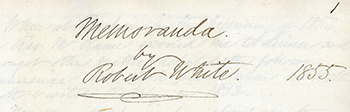 1
Memoranda.
by
Robert White. 1855.